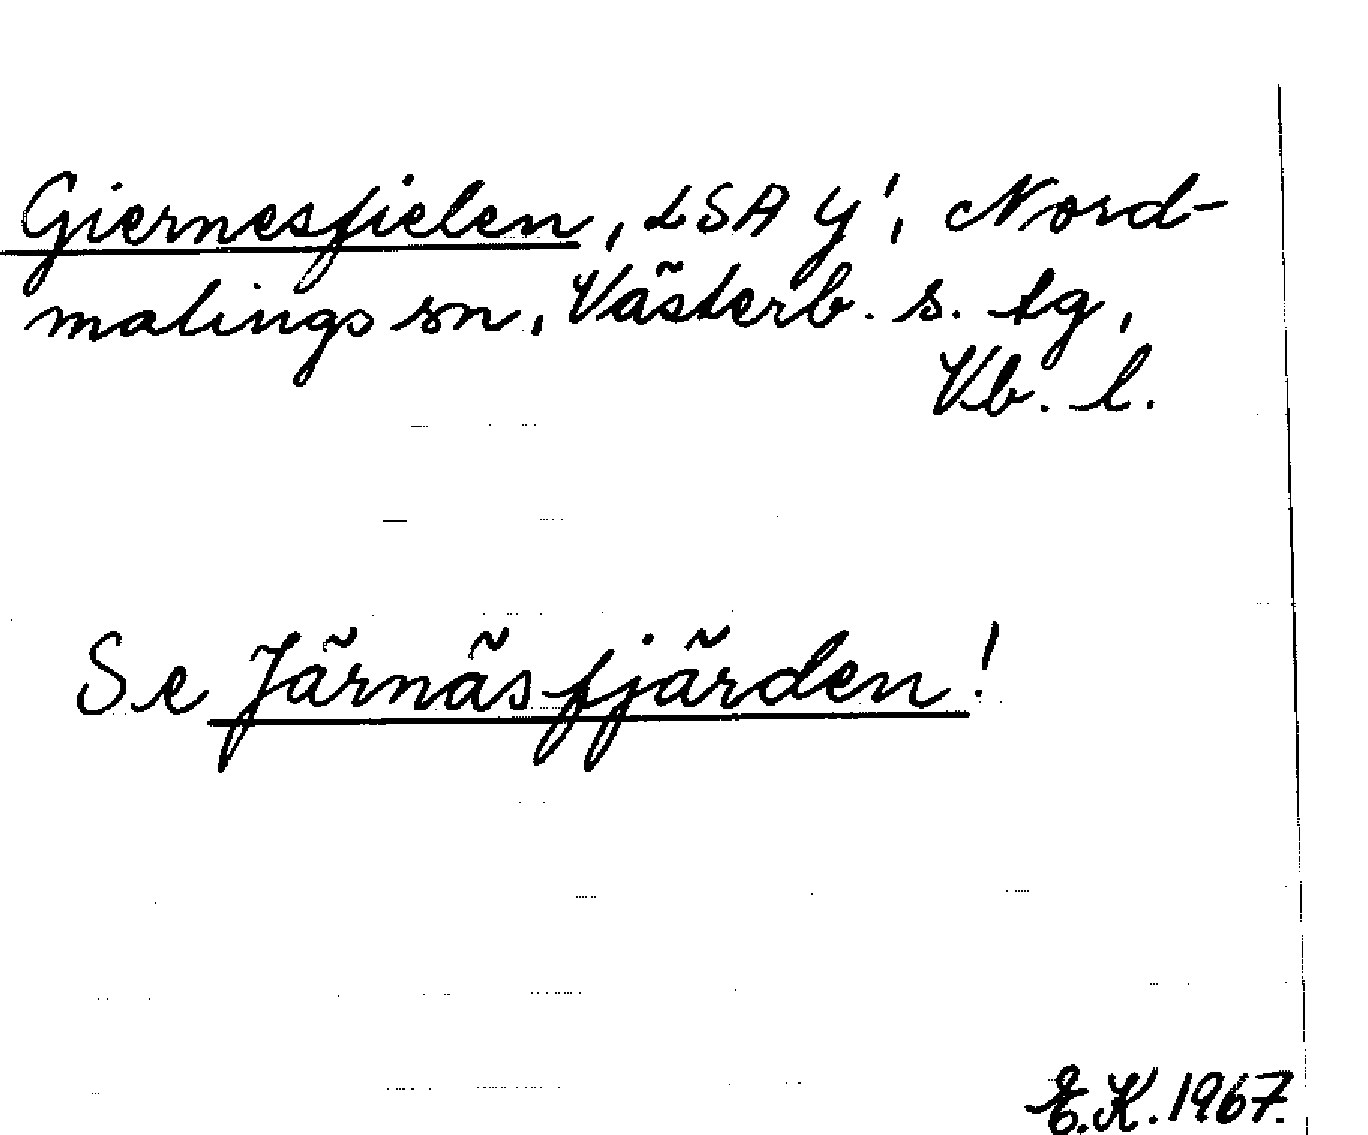 Giernesfielen, LSA Y', Nord-
malings sn, Västerb. s. tg,
Vb. l.
Se Järnäsfjärden!
E.K. 1967.